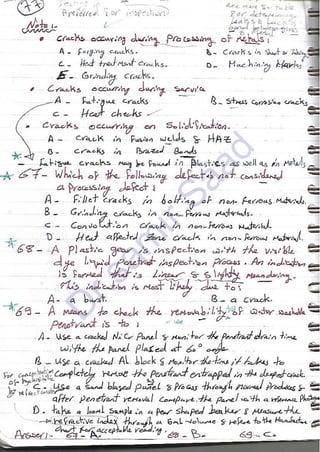 77
Preferred for inspection
Note:
• Cracks occurring during Processing of Metals:
A - Forging cracks.
B - Cracks in Sheet or
C - Heat treatment cracks.
D - Machining tears
E - Grinding cracks.
• Cracks occurring during Service
A - Fatigue cracks
B - Stress corrosion cracks
C - Heat checks
• Cracks occurring on Solidification.
A - crack in Fusion welds & HAZ
B - cracks in Brazed Bonds
- Fatigue cracks may be found in plastics as well as in Metals
67- Which of the following defect is not considered
a processing defect:
A - Fillet cracks in bolting of non Ferrous Materials.
B - Grinding cracks in non Ferrous Materials.
C - Convolution crack in non-ferrous material.
D - Heat affected zone crack in non-ferrous Material.
68- A plastic gear is inspection with the visible
dye liquid penetrant inspection process. An indication
is formed that is linear & slightly meandering.
This indication is most likely due to:
A - a burst.
B - a crack.
69- A means to check the removability of water washable
Penetrant is to:
A - Use a cracked NiCr Panel & monitor the penetrant drain time
withe the panel placed at 60° angle
B - Use a cracked Al block & monitor the time it takes to
completely remove the penetrant entrapped in the deepest crack
C - Use a sand blased panel & Process through normal produces &
after penetrant removal compare the panel with a reference photograph
D - take a sample in a pear shaped beaker & measure the
refractive index through a 6ml volume & refere to the Manufacture
chart for acceptable reading.
Answer: 67- A. 68- B. 69- C.